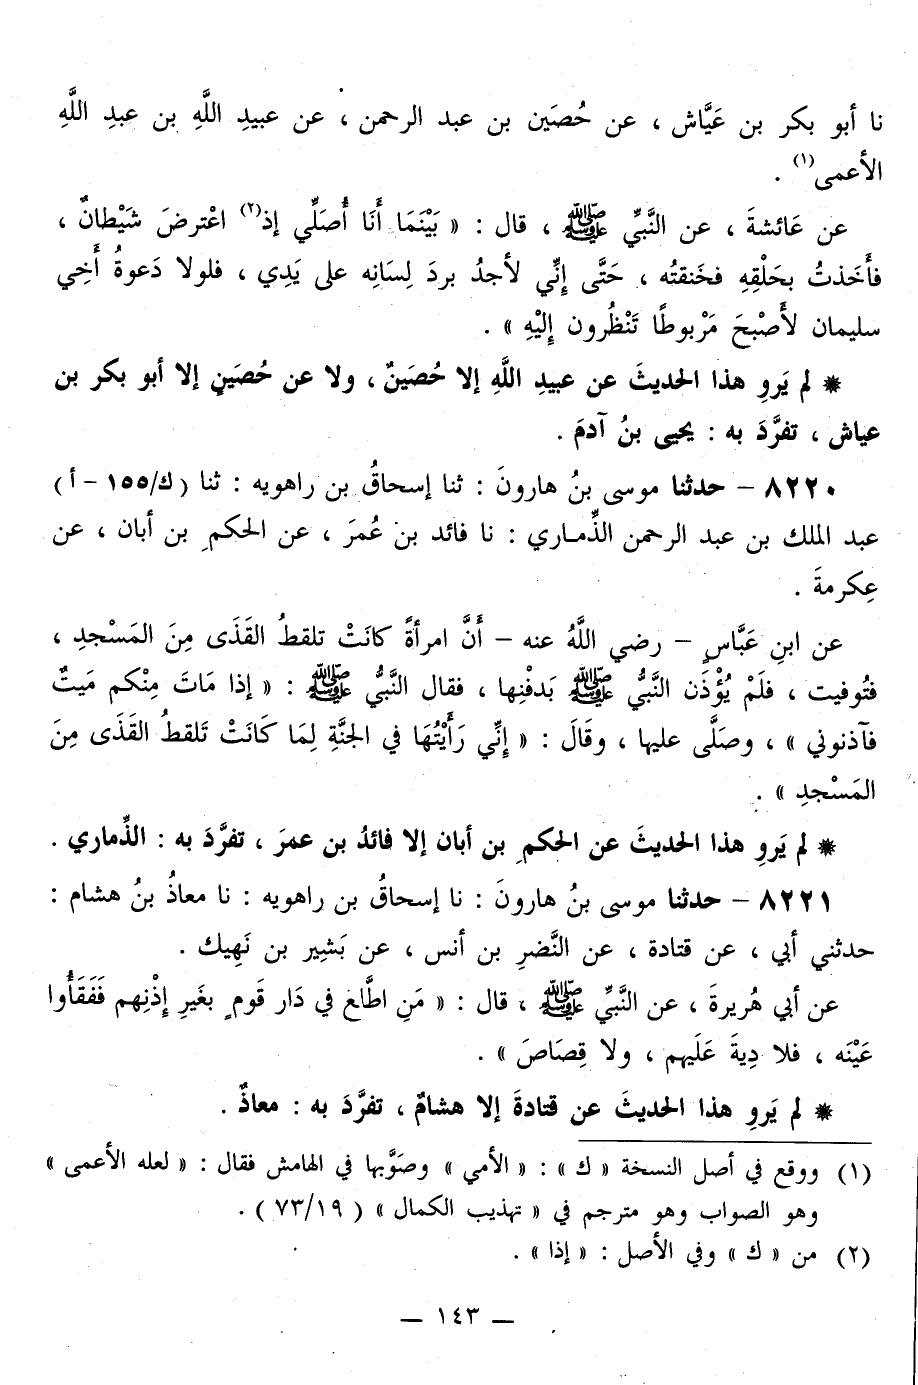 نا أبو بكر بن عَيَّاش ، عن حُصَين بن عبد الرحمن ، عن عبيدِ اللَّهِ بن عبدِ اللَّهِ
الأعمى(١) .
عن عَائشةَ ، عن النَّبيِّ ﷺ ، قال : « بَيْنَمَا أَنَا أُصَلِّي إذ(٢) اعْترضَ شَيْطانٌ ،
فأَخَذتُ بحَلْقِهِ فخَنقتُه ، حَتَّى إنِّي لأجدُ بردَ لِسَانِه على يَدِي ، فلولا دَعوةُ أَخِي
سليمان لأَصْبحَ مَرْبوطًا تَنْظُرون إلَيْهِ » .
⁕ لم يَروِ هذا الحديثَ عن عبيدِ اللَّهِ إلا حُصَينٌ ، ولا عن حُصَينٍ إلا أبو بكر بن
عياش ، تفرَّدَ به : يحيى بنُ آدمَ .
٨٢٢٠ – حدثنا موسى بنُ هارونَ : ثنا إسحاقُ بن راهويه : ثنا (ك/١٥٥ – أ)
عبد الملك بن عبد الرحمن الذِّمـاري : نا فائد بن عُمرَ ، عن الحكمِ بن أبان ، عن
عِكرمةَ .
عن ابنِ عَبَّاسٍ – رضي اللَّهُ عنه – أَنَّ امرأةً كانَتْ تلقطُ القَذَى مِنَ المَسْجدِ ،
فتُوفيت ، فلَمْ يُؤْذَن النَّبيُّ ﷺ بَدفْنِها ، فقال النَّبيُّ ﷺ : « إذا مَاتَ مِنْكم مَيتٌ
فآذنوني » ، وصَلَّى عليها ، وقَالَ : « إنِّي رَأَيْتُهَا في الجنَّةِ لِمَا كَانَتْ تَلقطُ القَذَى مِنَ
المَسْجدِ » .
⁕ لم يَروِ هذا الحديثَ عن الحكمِ بن أبان إلا فائدُ بن عمرَ ، تفرَّدَ به : الذِّماري .
٨٢٢١ – حدثنا موسى بنُ هارونَ : نا إسحاقُ بن راهويه : نا معاذُ بنُ هشام :
حدثني أبي ، عن قتادة ، عن النَّضرِ بن أنس ، عن بَشِير بن نَهِيك .
عن أبي هُريرةَ ، عن النَّبيِّ ﷺ ، قال : « مَنِ اطَّلع في دَار قَومٍ بغَيرِ إِذْنِهم فَفَقَأُوا
عَيْنَه ، فلا دِيةَ عَلَيهم ، ولا قِصَاصَ » .
⁕ لم يَروِ هذا الحديثَ عن قتادةَ إلا هشامٌ ، تفرَّدَ به : معاذٌ .
(١) ووقع في أصل النسخة « ك » : « الأمي » وصَوَّبها في الهامش فقال : « لعله الأعمى »
وهو الصواب وهو مترجم في « تهذيب الكمال » ( ٧٣/١٩ ) .
(٢) من « ك » وفي الأصل : « إذا » .
— ١٤٣ —